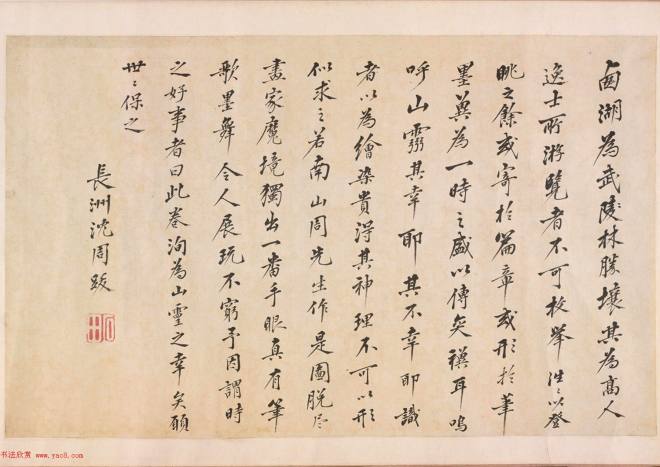 西湖為武陵林勝壤其為高人
逸士所游覽者不可枚舉往〻以登
眺之餘或寄於篇章或形於筆
墨冀為一時之盛以傳奕禩耳嗚
呼山靈其幸耶其不幸耶識
者以為繪染貴得其神理不可以形
似求之若南山周先生作是圖脫盡
畫家魔境獨出一番手眼真有筆
歌墨舞令人展玩不窮予因謂時
之好事者曰此卷洵為山靈之幸矣願
世〻保之
長洲沈周跋
书法欣赏 www.yac8.com